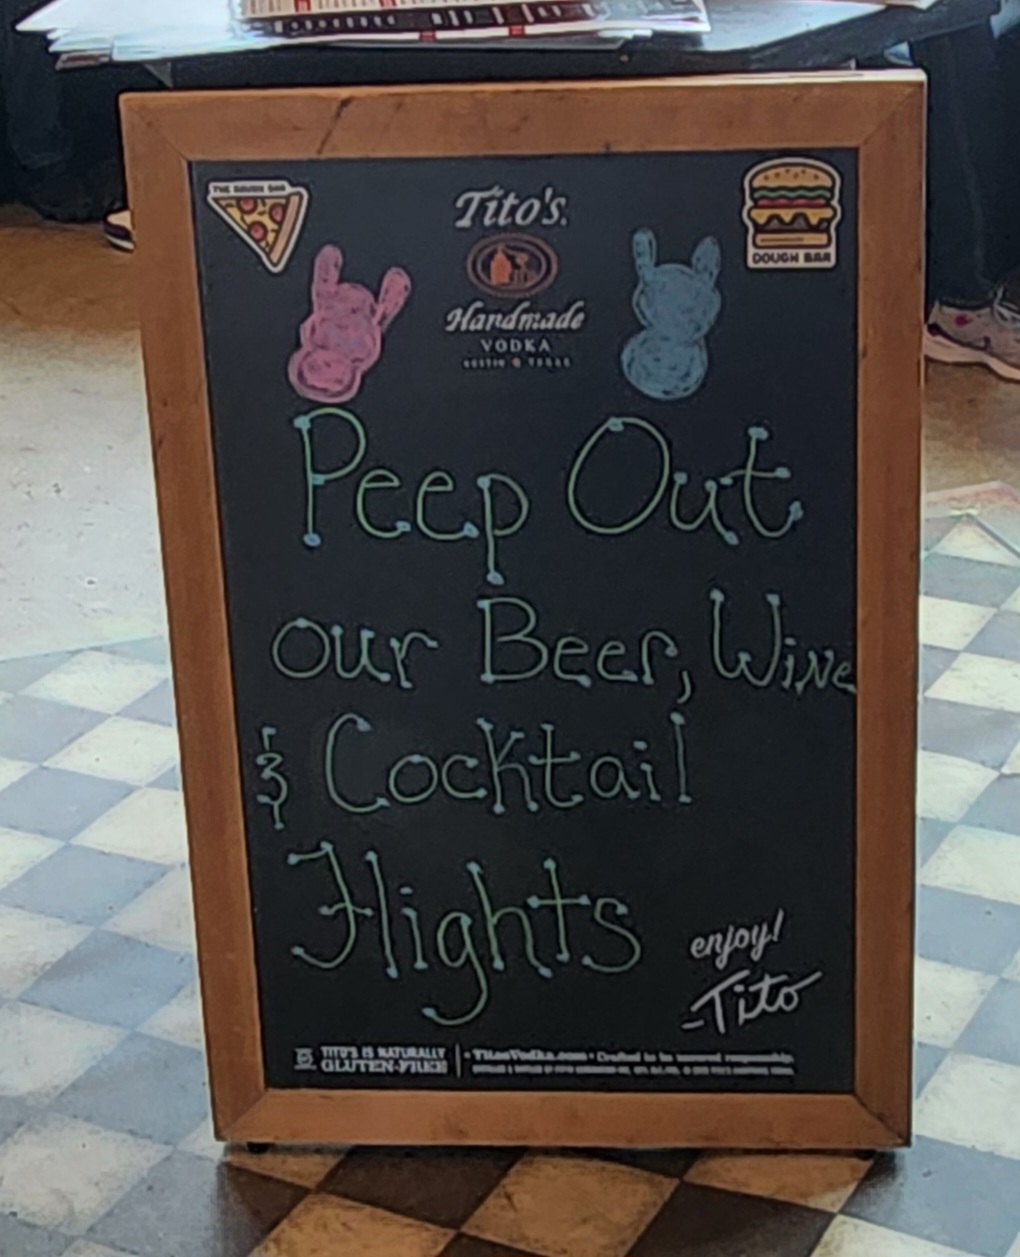 THE DOUGH BAR
Tito's
Handmade
VODKA
AUSTIN TEXAS
DOUGH BAR
Peep Out
our Beer, Wine
& Cocktail
Flights
enjoy!
-Tito
TITO'S IS NATURALLY
GLUTEN-FREE
• TitosVodka.com • Crafted to be savored responsibly.